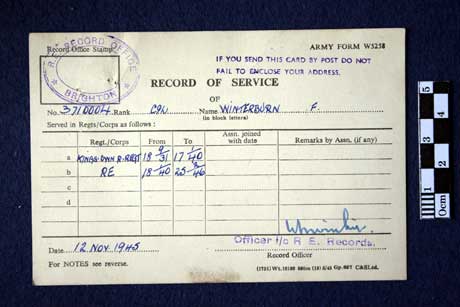 Record Office Stamp
ARMY FORM W5258
R.E. RECORD OFFICE
BRIGHTON
IF YOU SEND THIS CARD BY POST DO NOT
FAIL TO ENCLOSE YOUR ADDRESS.
RECORD OF SERVICE
OF
No. 3710004 Rank Name WINTERBURN F.
(in block letters)
Served in Regts/Corps as follows :
Regt./Corps From To Assn. joined with date Remarks by Assn. (if any)
a KINGS OWN R. REGT 18 9/31 17 1/40
b RE 18 1/40 25 /46
c
d
Date 12 NOV 1945
Officer i/c R E. Records.
Record Officer
For NOTES see reverse.
5
0cm